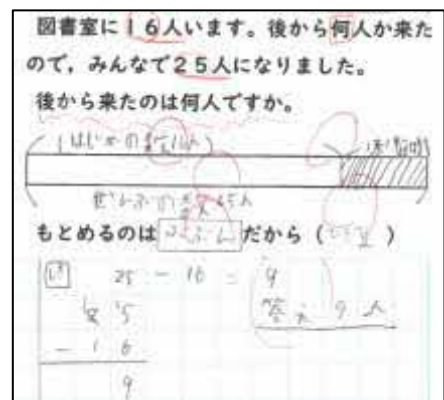 図書室に16人います。後から何人か来た
ので，みんなで25人になりました。
後から来たのは何人ですか。
はじめの
ぜんぶの 25人
もとめるのは ぶぶん だから（ ）
25 - 16 = 9
答え 9人
15
- 16
9